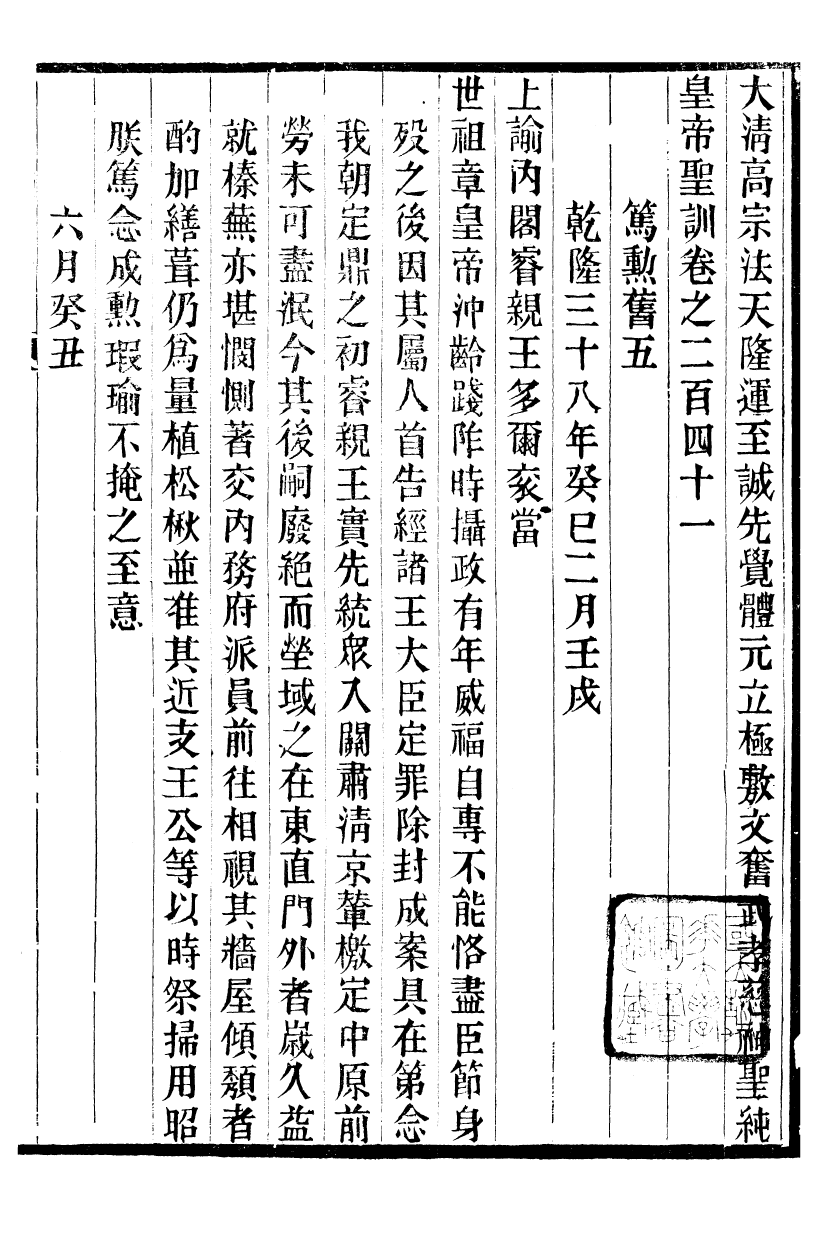 大淸高宗法天隆運至誠先覺體元立極敷文奮武孝慈神聖純
皇帝聖訓卷之二百四十一
篤勲舊五
乾隆三十八年癸巳二月壬戌
上諭內閣睿親王多爾袞當
世祖章皇帝沖齡踐阼時攝政有年威福自專不能恪盡臣節身
歿之後因其屬人首告經諸王大臣定罪除封成案具在第念
我朝定鼎之初睿親王實先統衆入關肅淸京輦檄定中原前
勞未可盡泯今其後嗣廢絕而塋域之在東直門外者歲久益
就榛蕪亦堪憫惻著交內務府派員前往相視其牆屋傾頽者
酌加繕葺仍爲量植松楸並准其近支王公等以時祭掃用昭
朕篤念成勲瑕瑜不掩之至意
六月癸丑